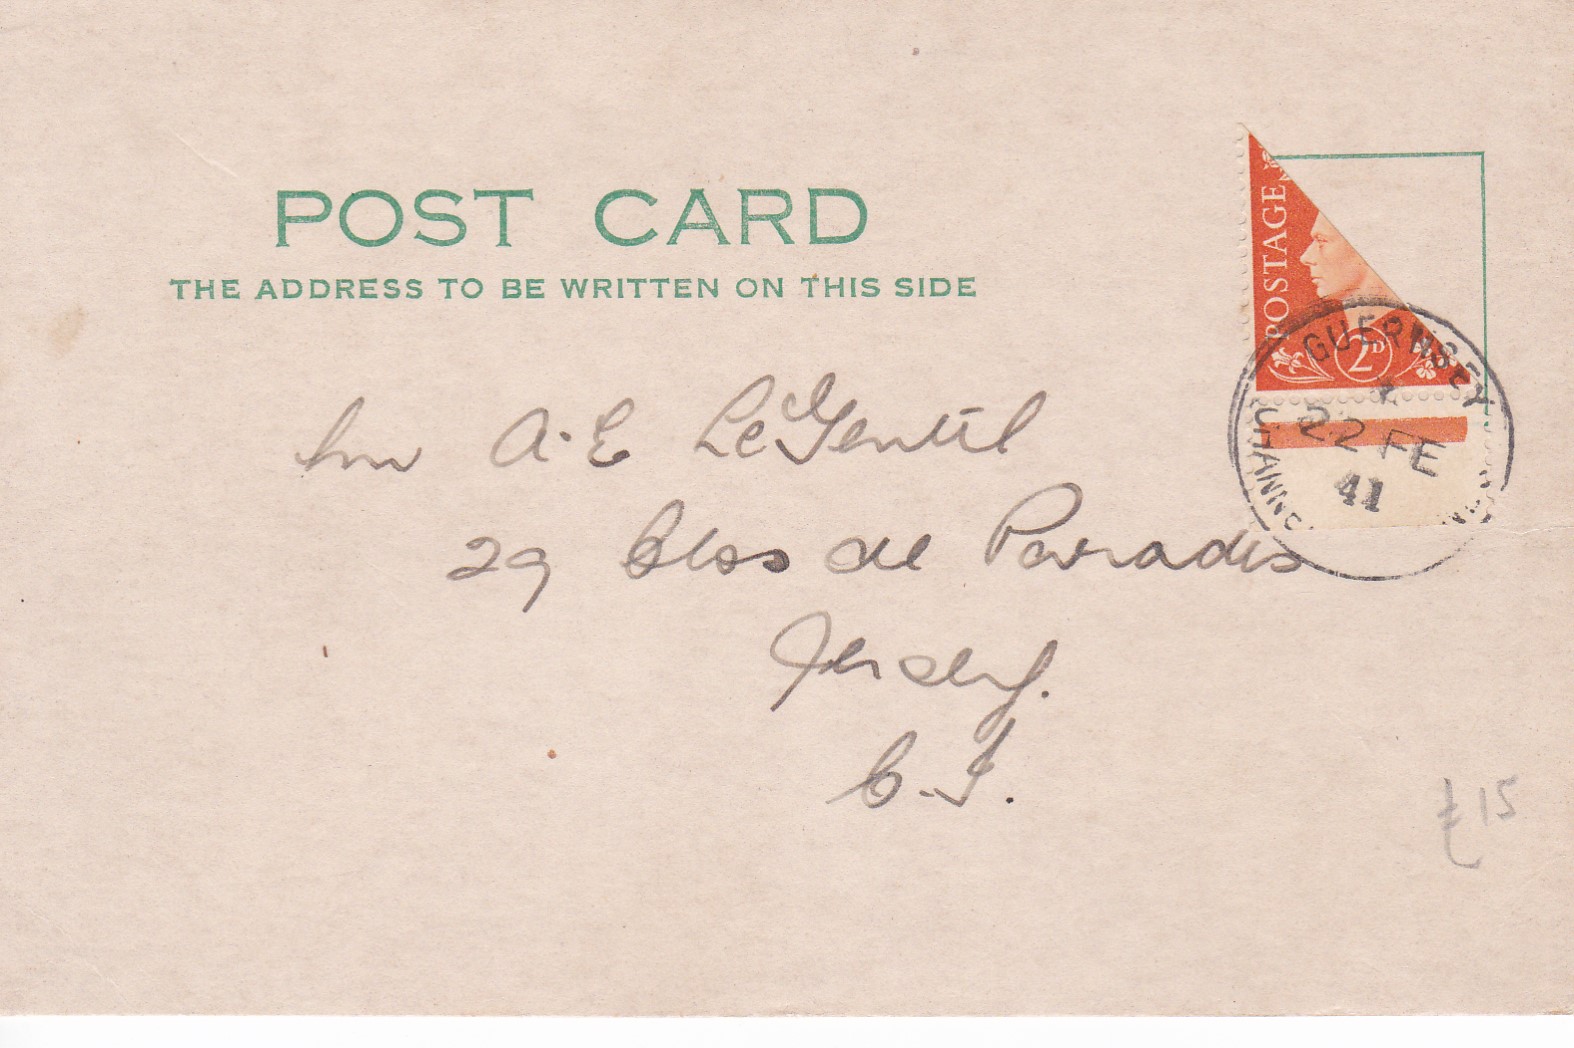 POST CARD
THE ADDRESS TO BE WRITTEN ON THIS SIDE
POSTAGE
2D
GUERNSEY
22 FE
41
CHANN
A. E LeGentil
29 Clos de Paradis
Jersey.
C. I.
£15